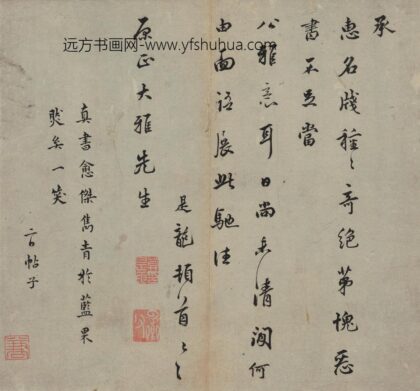 远方书画网-www.yfshuhua.com
承
惠名牋種〻奇絶第愧惡
書不足當
公雅意耳日尚未清閒何
由面詣展此馳注
是龍頓首〻〻
原正大雅先生
真書愈傑雋青於藍果
然矣一笑
帖子